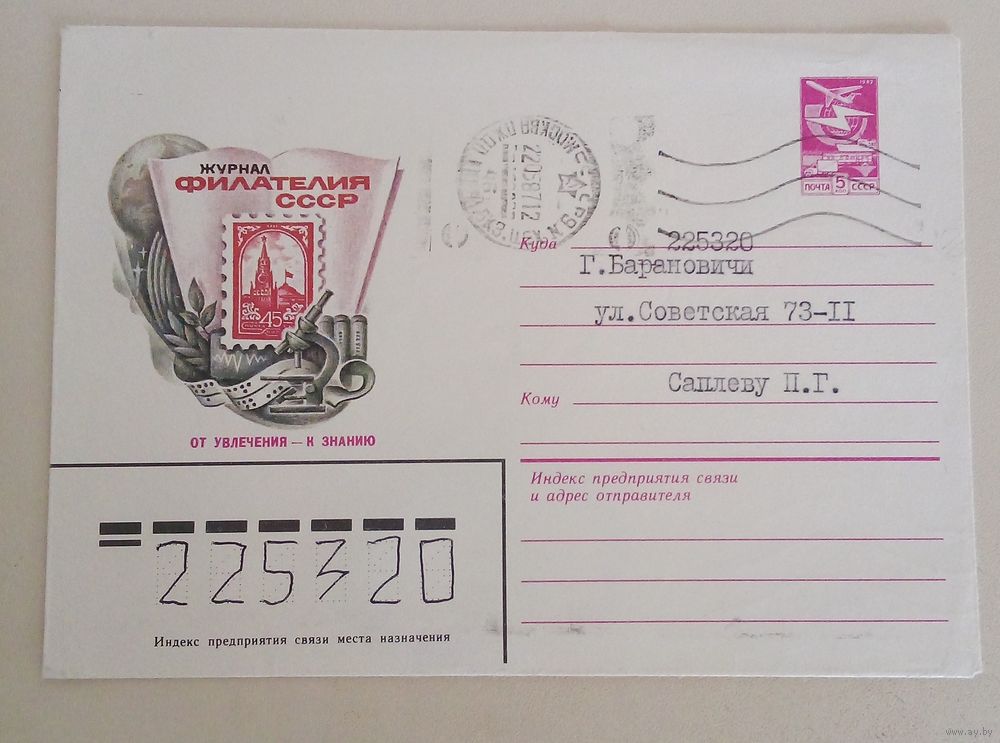 ЖУРНАЛ
ФИЛАТЕЛИЯ
СССР
45
ОТ УВЛЕЧЕНИЯ — К ЗНАНИЮ
МОСКВА
220587 12
1982
ПОЧТА 5 КОП СССР
Куда
225320
Г.Барановичи
ул.Советская 73-II
Кому
Саплеву П.Г.
Индекс предприятия связи
и адрес отправителя
225320
Индекс предприятия связи места назначения
www.ay.by